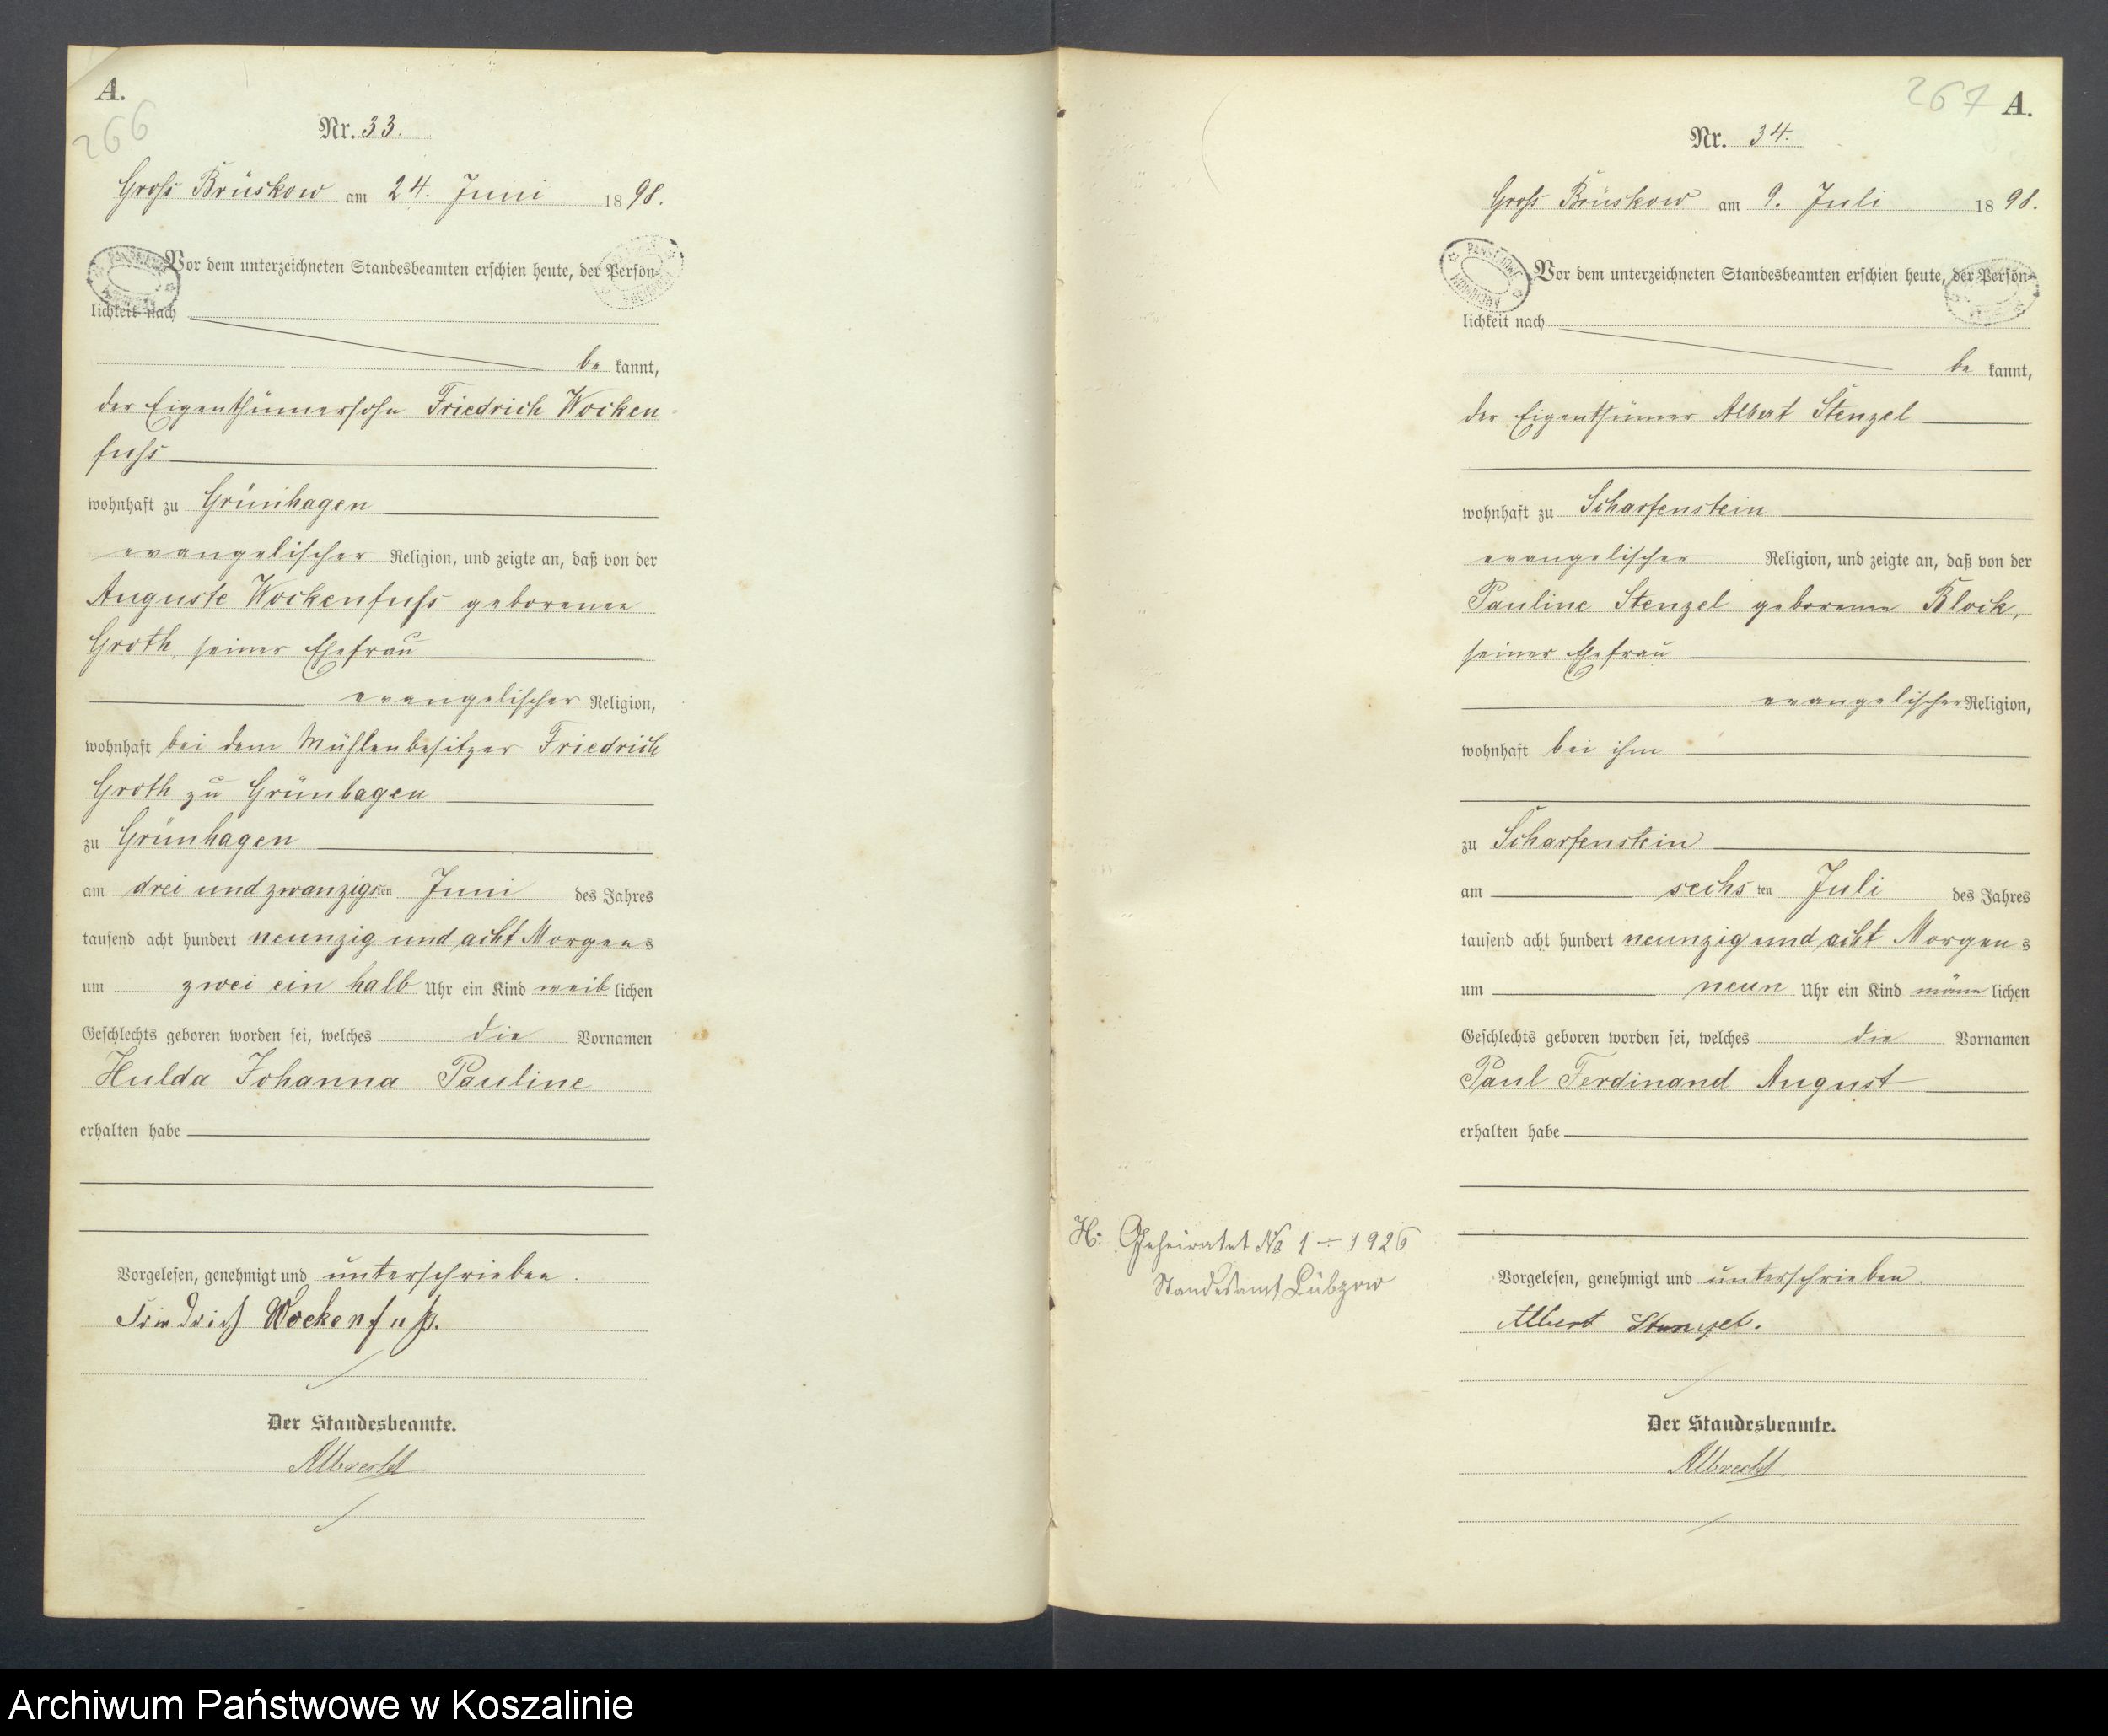 A.
266
Nr. 33.
Gross Brüskow am 24. Juni 1898.
Vor dem unterzeichneten Standesbeamten erschien heute, der Persön-
lichkeit nach
be kannt,
der Eigenthümersohn Friedrich Wocken-
fuss
wohnhaft zu Grünhagen
evangelischer Religion, und zeigte an, daß von der
Auguste Wockenfuss geborenen
Groth, seiner Ehefrau
evangelischer Religion,
wohnhaft bei dem Mühlenbesitzer Friedrich
Groth zu Grünhagen
zu Grünhagen
am drei und zwanzigsten Juni des Jahres
tausend acht hundert neunzig und acht Morgens
um zwei ein halb Uhr ein Kind weiblichen
Geschlechts geboren worden sei, welches die Vornamen
Hulda Johanna Pauline
erhalten habe
Vorgelesen, genehmigt und unterschrieben.
Friedrich Wockenfuß.
Der Standesbeamte.
Albrecht
267
A.
Nr. 34.
Gross Brüskow am 9. Juli 1898.
PAŃSTWOWE
ARCHIWUM
Vor dem unterzeichneten Standesbeamten erschien heute, der Persön-
lichkeit nach
be kannt,
der Eigenthümer Albert Stenzel
wohnhaft zu Scharfenstein
evangelischer Religion, und zeigte an, daß von der
Pauline Stenzel geborenen Block,
seiner Ehefrau
evangelischer Religion,
wohnhaft bei ihm
zu Scharfenstein
am sechsten Juli des Jahres
tausend acht hundert neunzig und acht Morgens
um neun Uhr ein Kind männlichen
Geschlechts geboren worden sei, welches die Vornamen
Paul Ferdinand August
erhalten habe
H: Geheiratet No 1 ÷ 1926
Standesamt Lübzow
Vorgelesen, genehmigt und unterschrieben.
Albert Stenzel.
Der Standesbeamte.
Albrecht
Archiwum Państwowe w Koszalinie